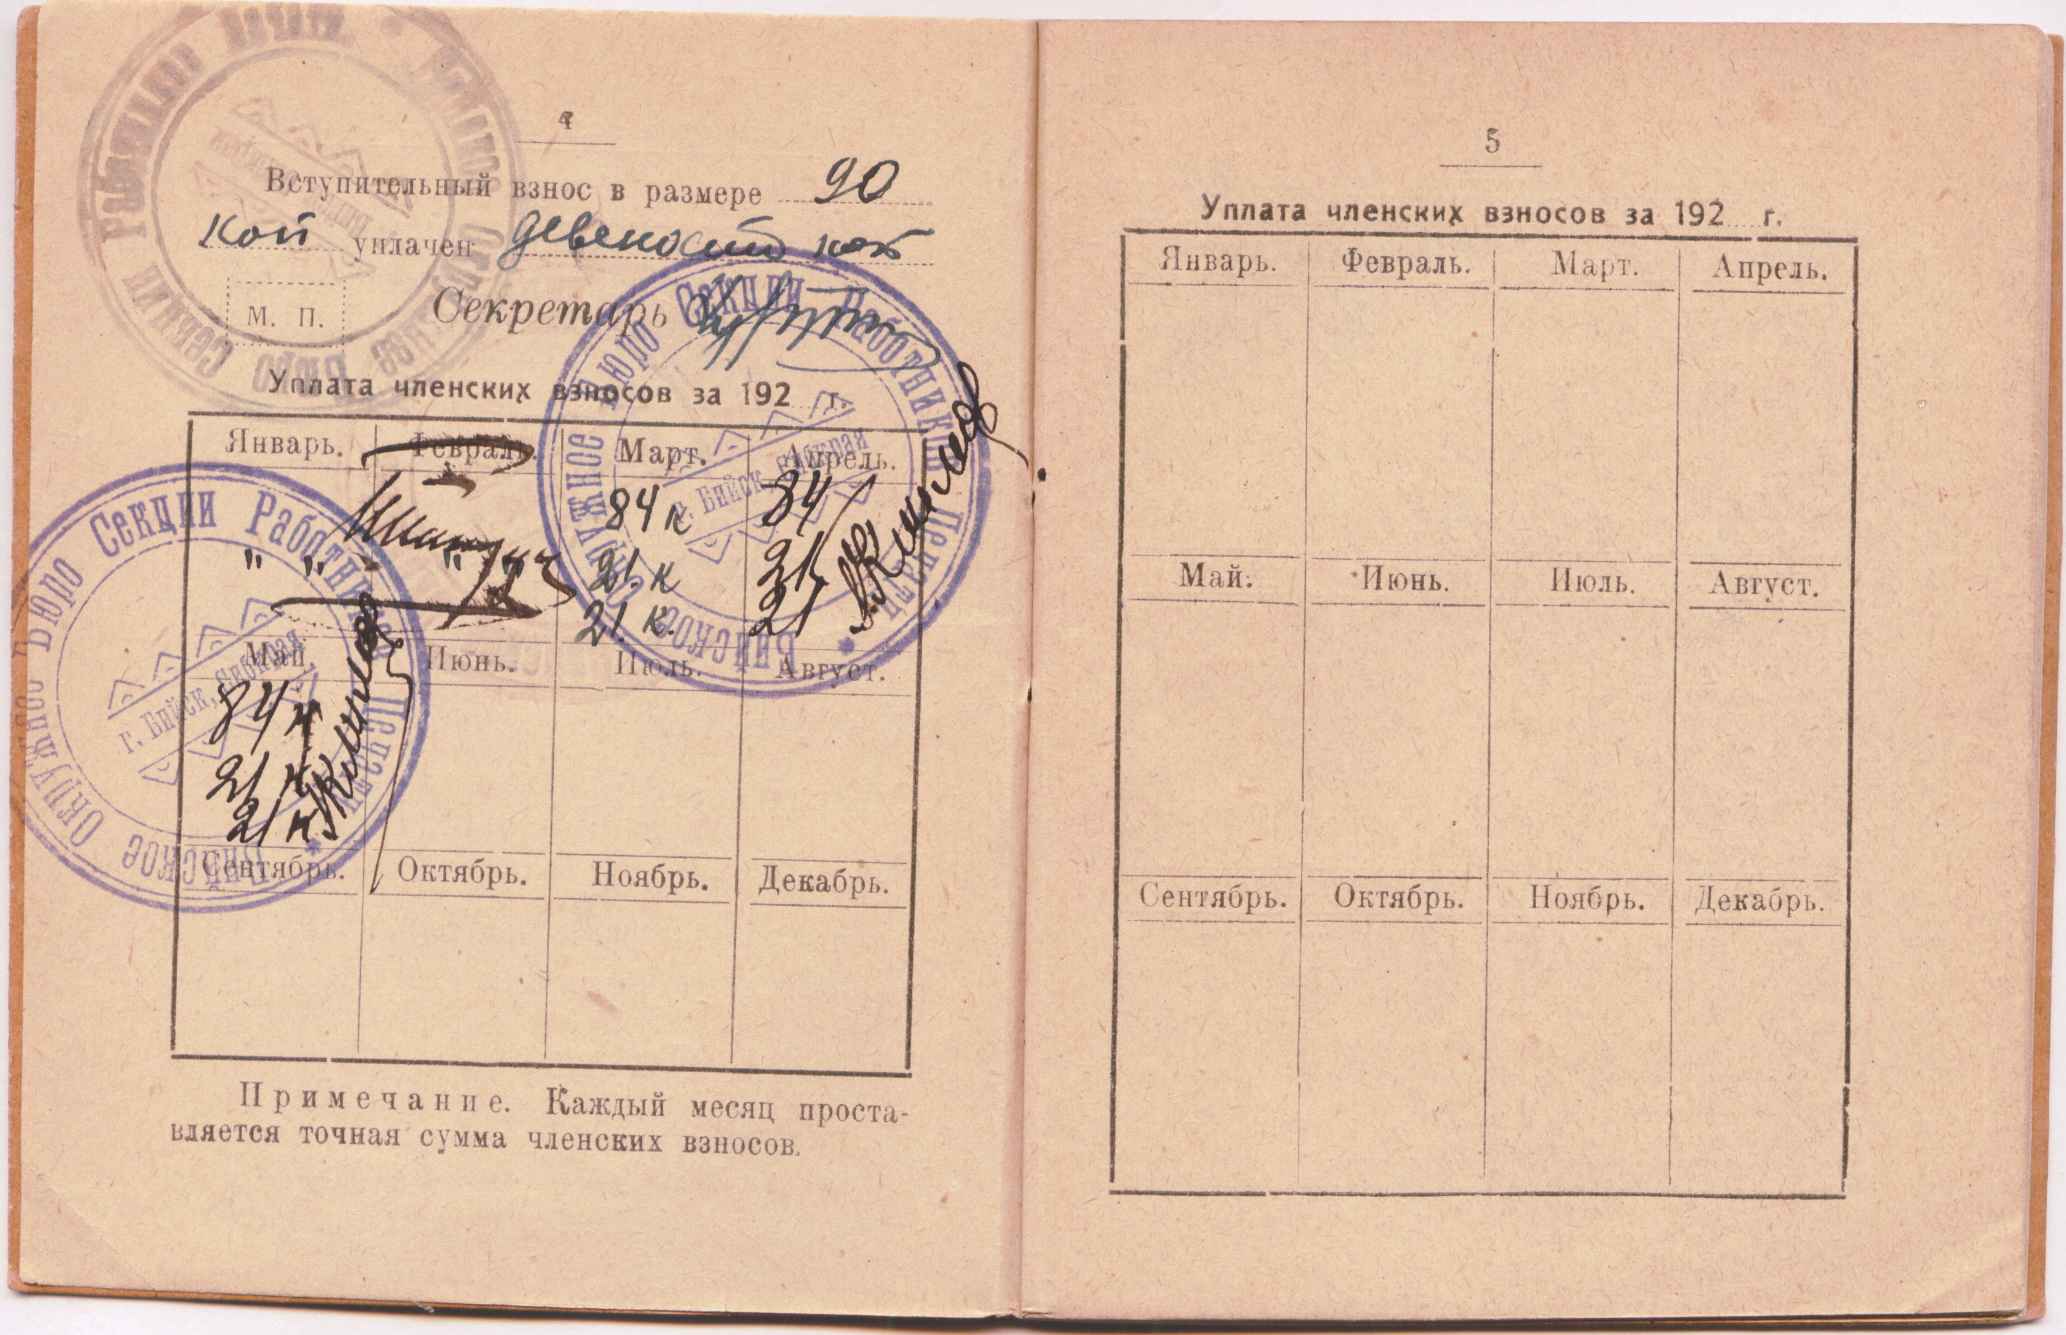 4
Вступительный взнос в размере 90
коп уплачен девеносто коп
М. П. Секретарь
Уплата членских взносов за 192 г.
Январь. Февраль. Март. Апрель.
84 к 84
" " " " 21. к 21
21. к. 21
Май Июнь. Июль. Август.
84 к
21 к
21 к
Сентябрь. Октябрь. Ноябрь. Декабрь.
Примечание. Каждый месяц простав-
ляется точная сумма членских взносов.
Бийское Окружное Бюро Секции Работников Печати
г. Бийск, Сибкрая
Бийское Окружное Бюро Секции Работников Печати
г. Бийск, Сибкрая
5
Уплата членских взносов за 192 г.
Январь. Февраль. Март. Апрель.
Май. Июнь. Июль. Август.
Сентябрь. Октябрь. Ноябрь. Декабрь.